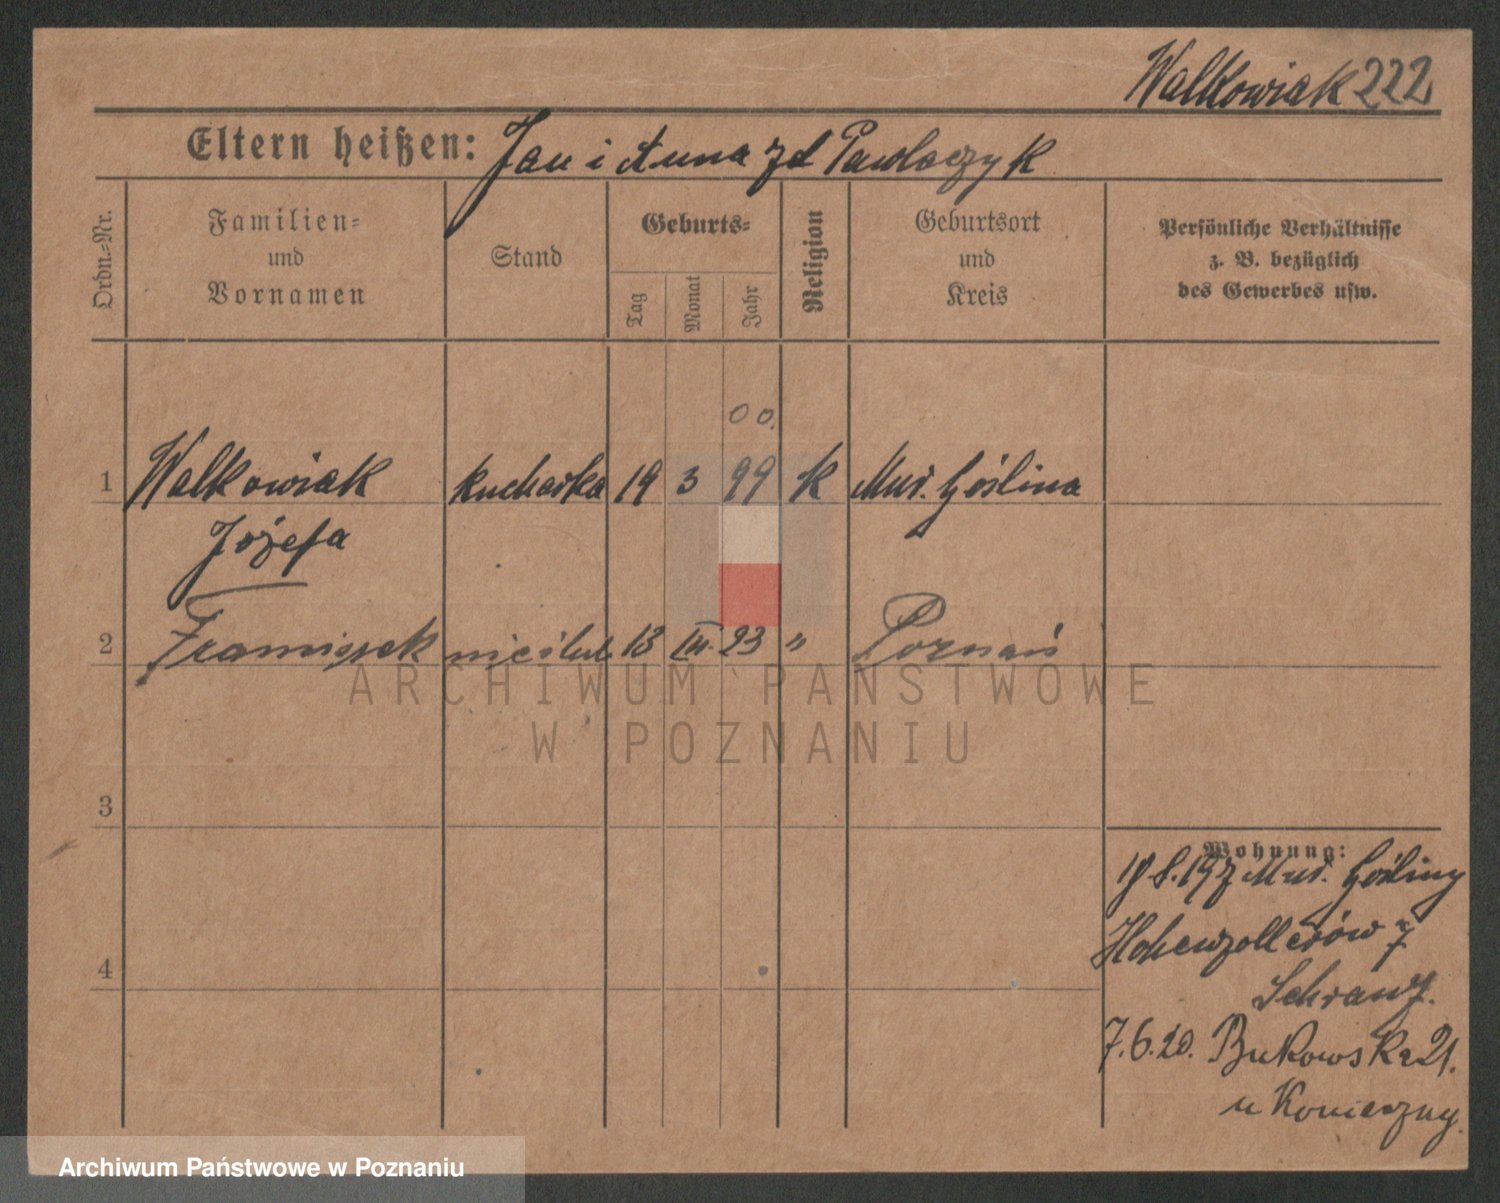 Walkowiak 222
Eltern heißen: Jan i Anna zd Pawlaczyk
Ordn.=Nr.
Familien=
und
Vornamen
Stand
Geburts=
Tag
Monat
Jahr
Religion
Geburtsort
und
Kreis
Persönliche Verhältnisse
z. B. bezüglich
des Gewerbes usw.
00.
1 Walkowiak kucharka 19 3 99 k Mur. Goślina
Józefa
2 Franciszek nieślub 13 III. 23 " Poznań
ARCHIWUM PAŃSTWOWE
W POZNANIU
3
Wohnung:
Mur. Gośliny
Hohenzollerów 7
4
Schranz.
7.6.20. Bukowska 21.
u Konieczny.
Archiwum Państwowe w Poznaniu